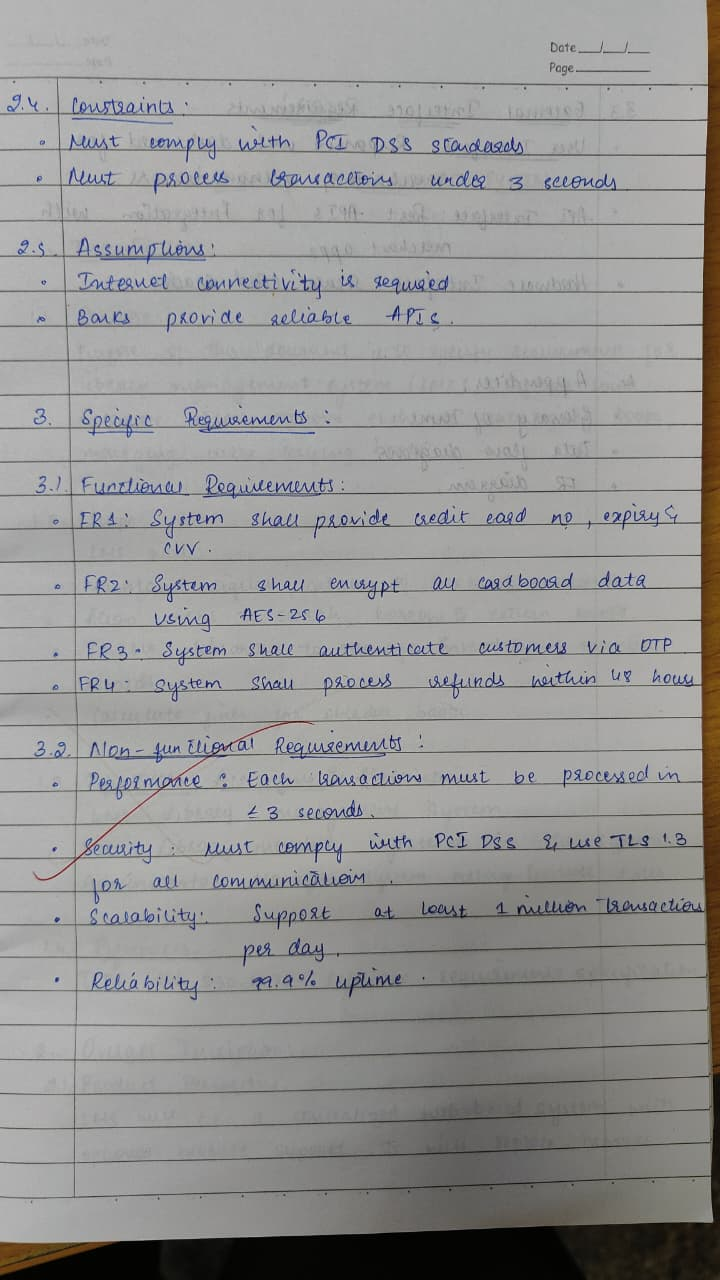 Date __/__/__
Page
2.4. Constraints :
• Must comply with PCI DSS standards
• Must process transactions under 3 seconds
2.5. Assumptions :
• Internet connectivity is required
• Banks provide reliable APIs.
3. Specific Requirements :
3.1. Functional Requirements :
• FR1 : System shall provide credit card no, expiry &
CVV.
• FR2 : System shall encrypt all cardboard data
using AES-256
• FR3 - System shall authenticate customers via OTP
• FR4 : System shall process refunds within 48 hours
3.2. Non-functional Requirements :
• Performance : Each transactions must be processed in
≤ 3 seconds.
• Security : Must comply with PCI DSS & use TLS 1.3
for all communication.
• Scalability : Support at least 1 million Transactions
per day.
• Reliability : 99.9% uptime.